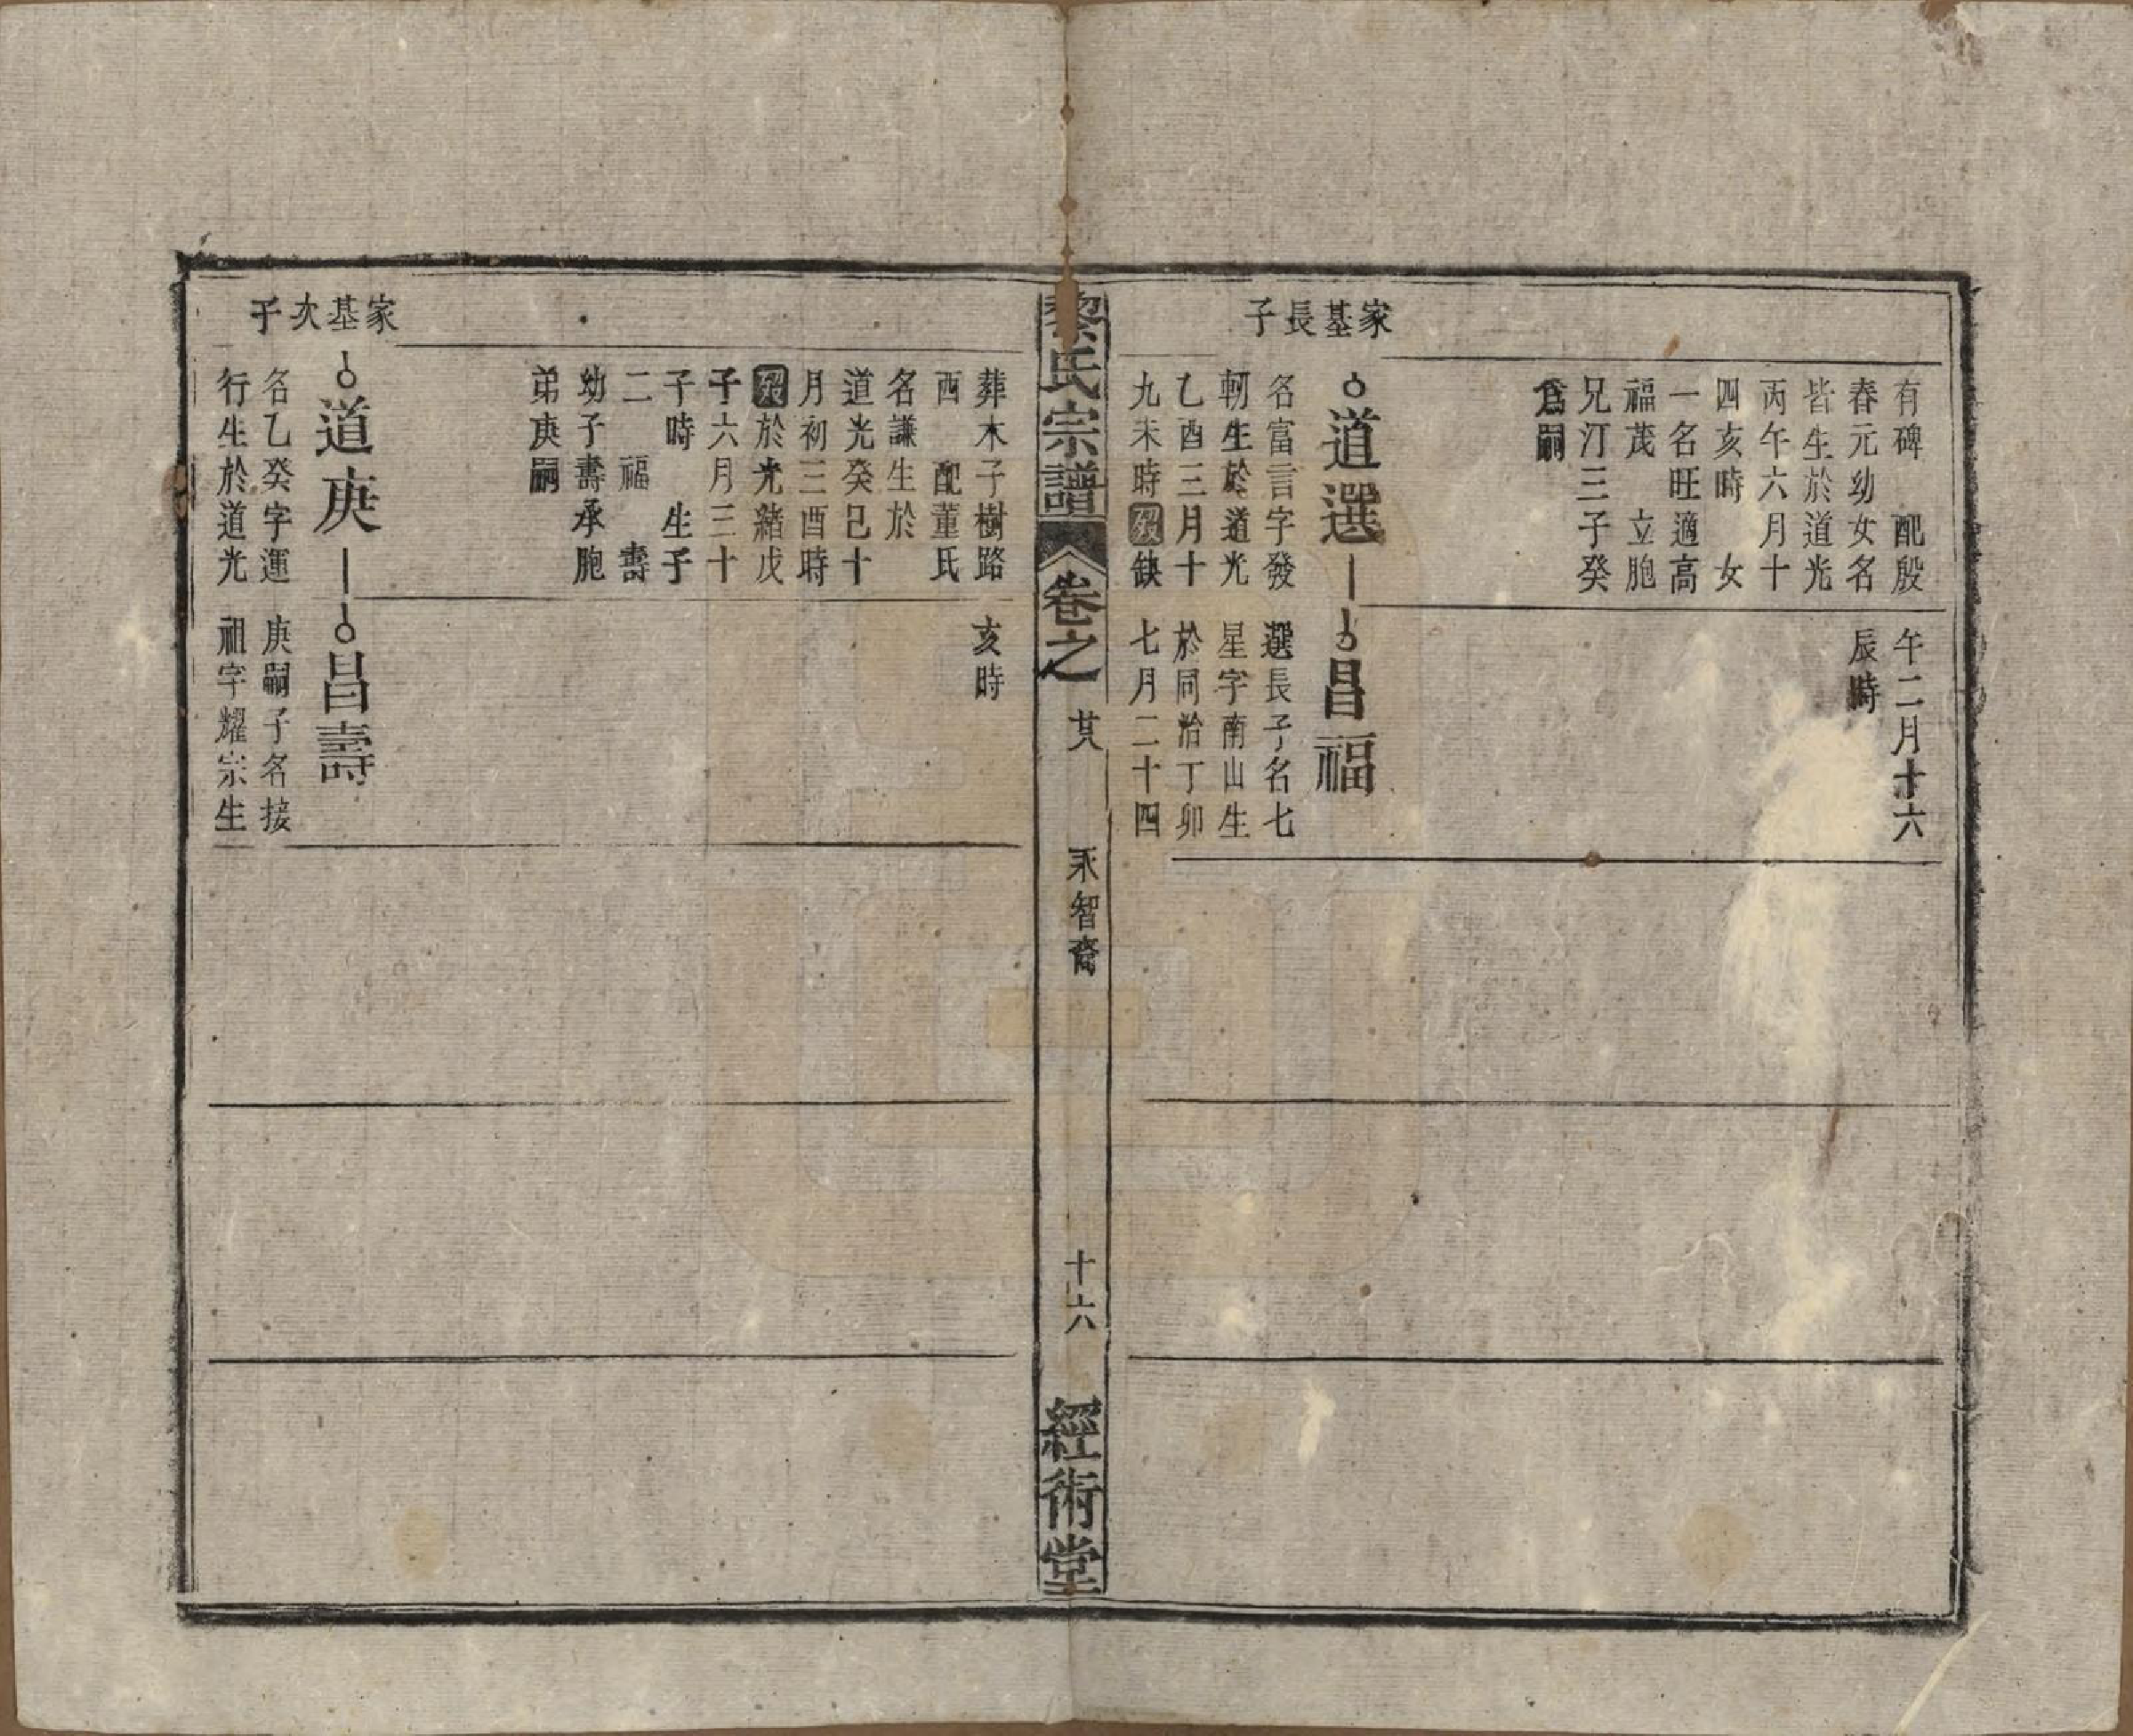 有碑　配殷
春元幼女名
皆生於道光
丙午六月十
四亥時　女
一名旺適高
福茂　立胞
兄汀三子癸
為嗣
午二月十六
辰時
家基長子
道選
名富言字發
軔生於道光
乙酉三月十
九未時歿缺
昌福
選長子名七
星字南山生
於同治丁卯
七月二十四
黎氏宗譜
卷之
廿八
永智裔
十六
經術堂
葬木子樹路
西　配董氏
名謙生於
道光癸巳十
月初三酉時
歿於光緒戊
子六月三十
子時　生子
二　福　壽
幼子壽承胞
弟庚嗣
亥時
家基次子
道庚
名乙癸字運
行生於道光
昌壽
庚嗣子名接
祖字耀宗生